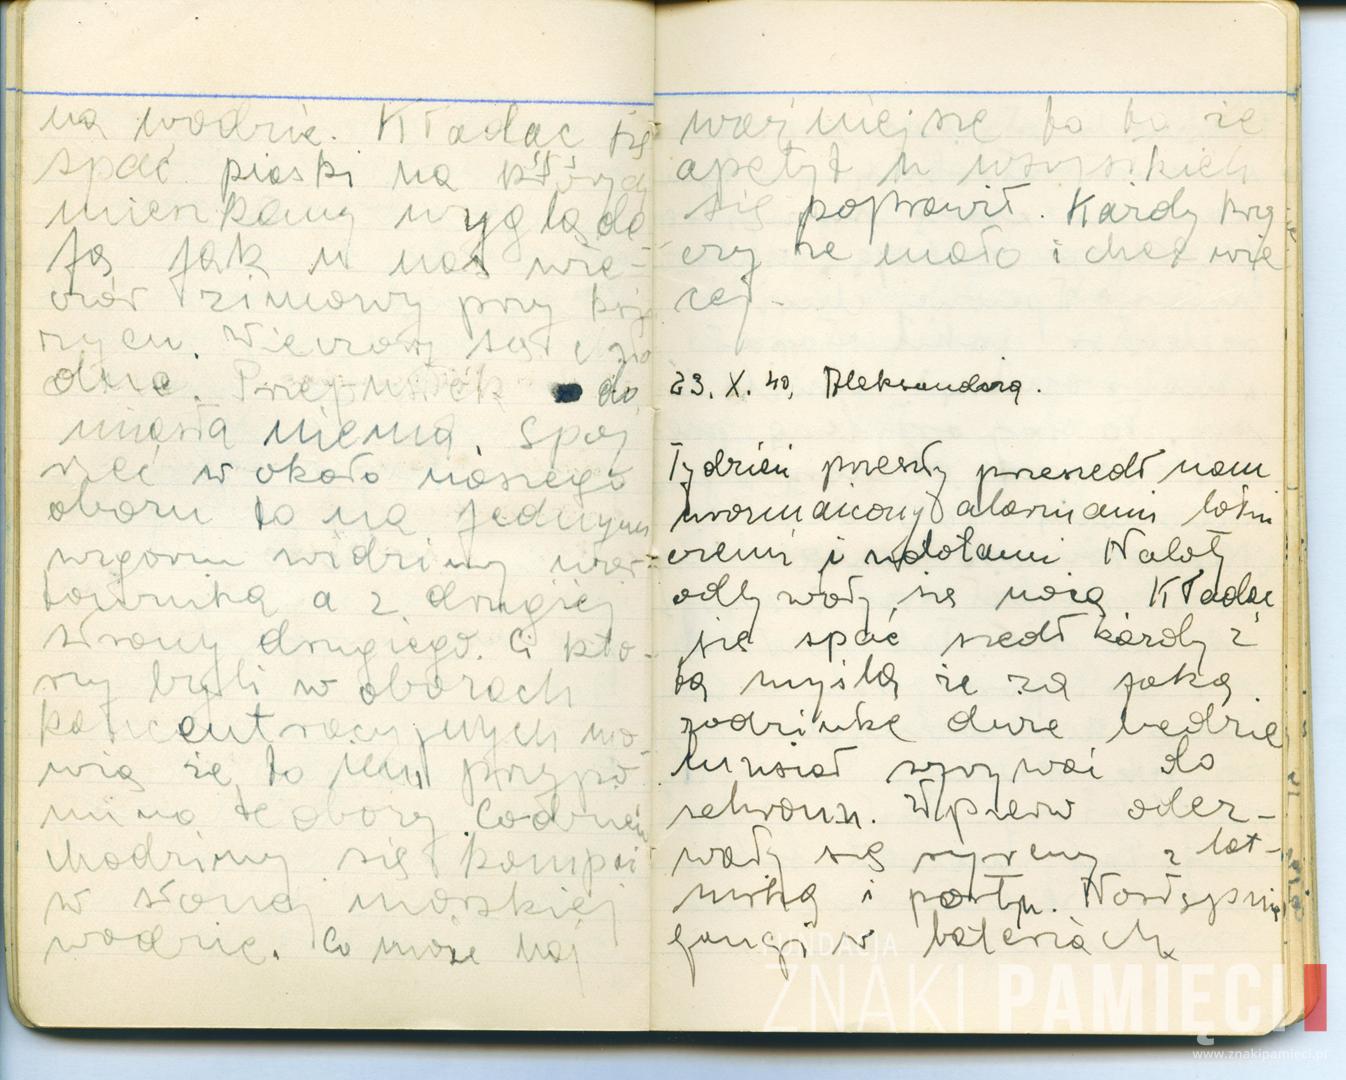 na wodzie. Kładąc się
spać piaski na których
mieszkamy wygląda
ją jak u nas wie-
czór zimowy przy księ
życu. Wieczory są chło
dne. Przepustek do
miasta niema. Spoj
rzeć w około naszego
obozu to na jednym
wzgórzu widzimy war-
townika a z drugiej
strony drugiego. Ci któ-
rzy byli w obozach
koncentracyjnych mó-
wią że to im przypo-
mina te obozy. Codzień
chodzimy się kompać
w słonej morskiej
wodzie. Co może naj
ważniejsze to to że
apetyt u wszystkich
się poprawił. Każdy krzy
czy że mało i chce wię
cej.
23. X. 40, Aleksandria.
Tydzień przeszły przeszedł nam
urozmaicony alarmami lotni
czemi i nalotami Naloty
odbywały się nocą. Kładąc
się spać szedł każdy z
tą myślą że za jaką
godzinkę dwie będzie
musiał wyrywać do
schronu. Wpierw oder-
wały się syreny z lot-
niska i portu. Następnie
gongi w bateriach
FUNDACJA
ZNAKI PAMIĘCI
www.znakipamieci.pl